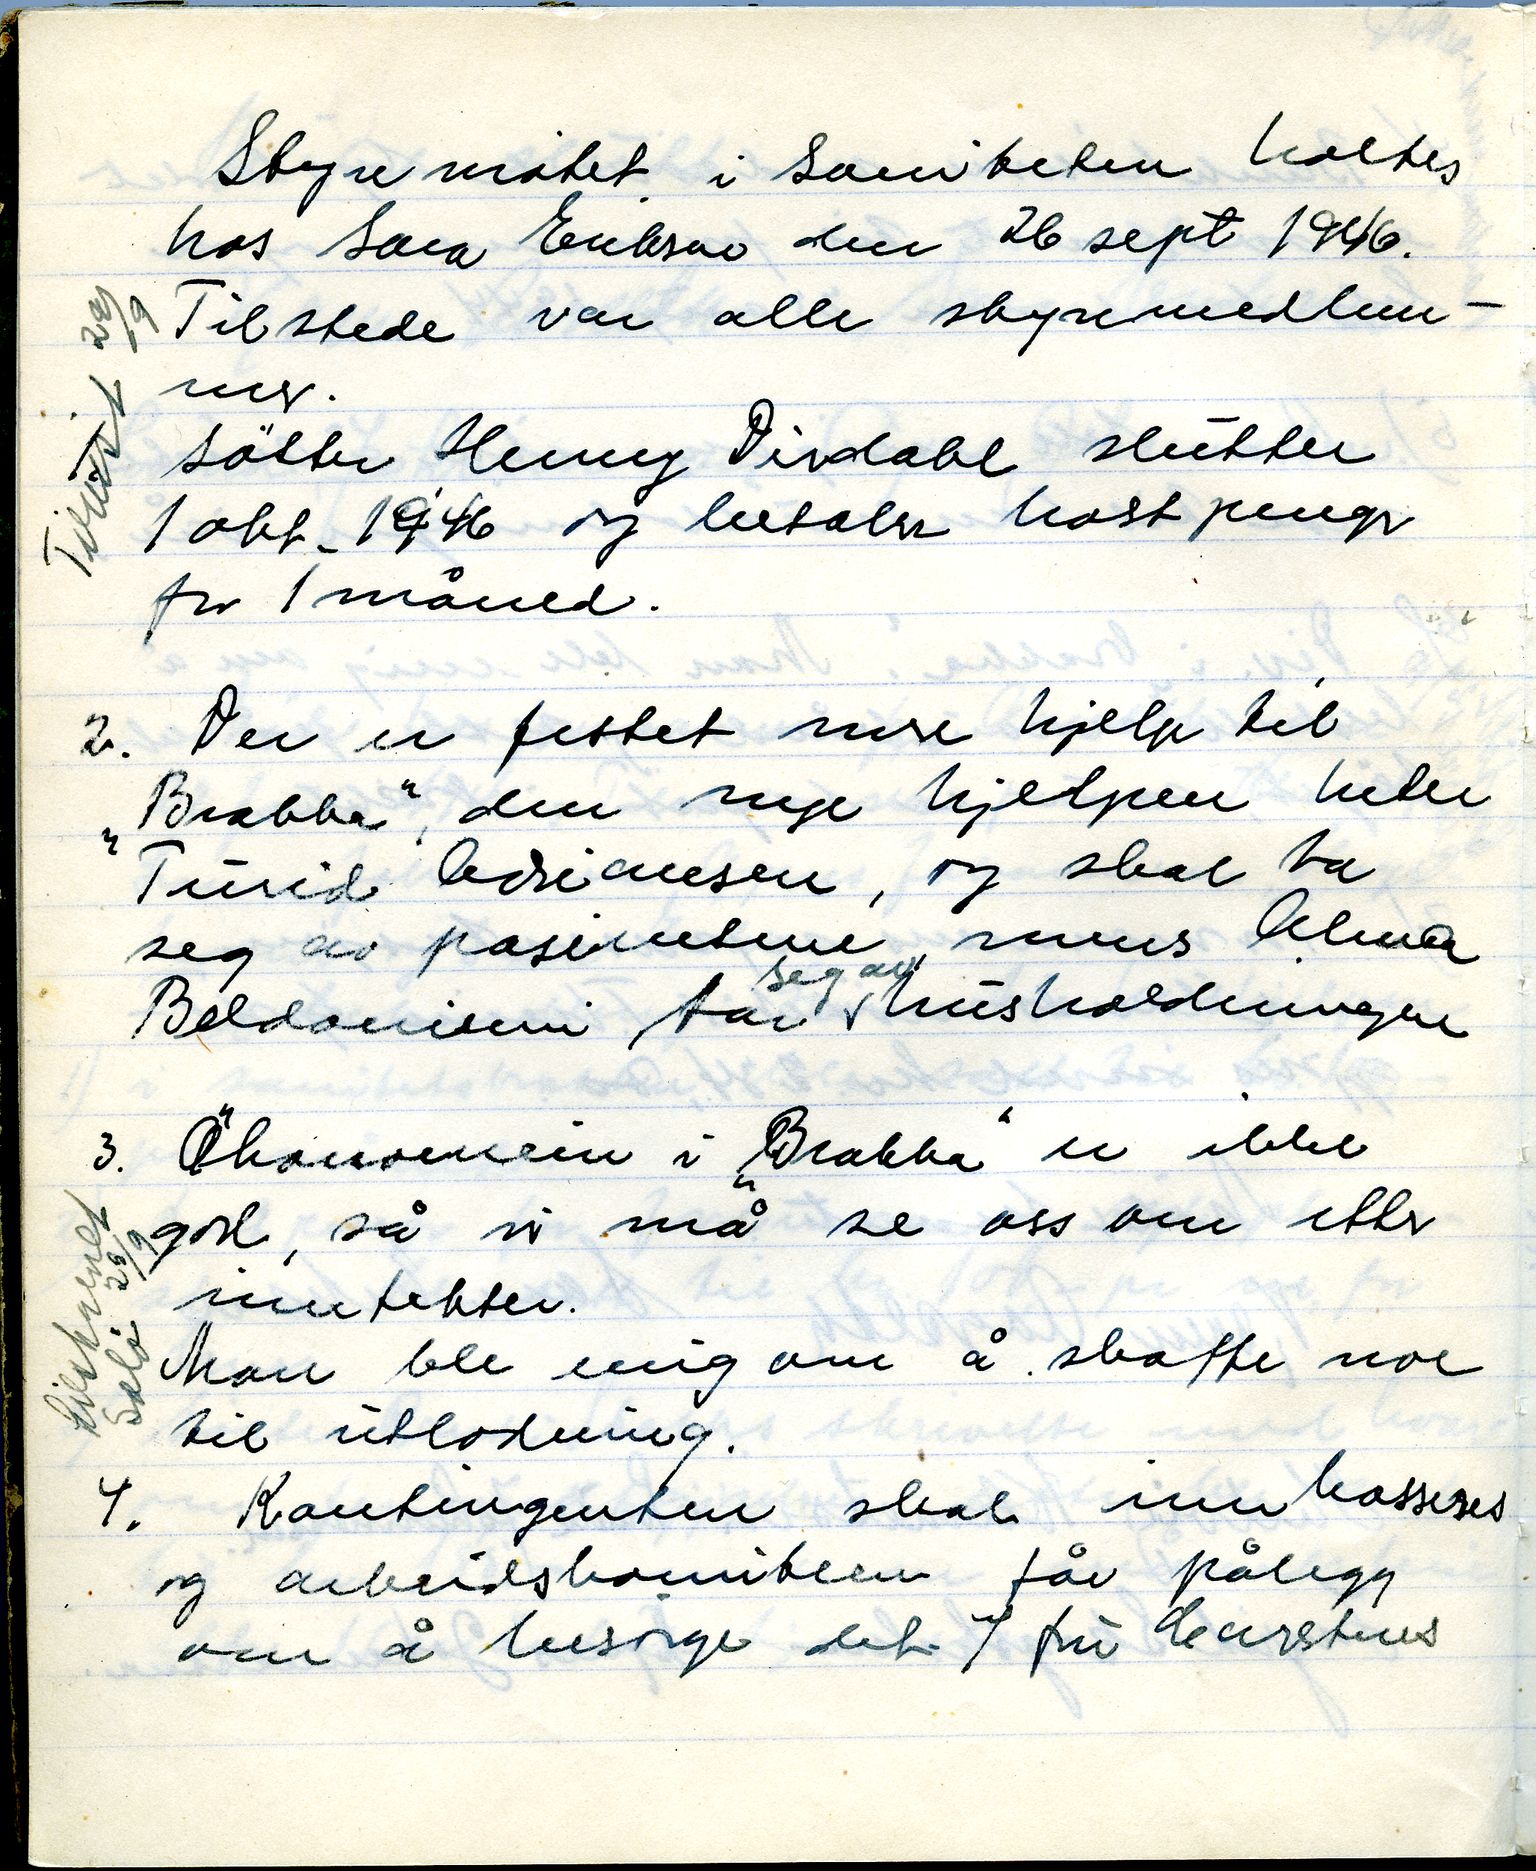 Styremötet i Saniteten holtes
hos Sara Erikson den 26 sept 1946.
Tilstede var alle styremedlem-
mer.
Söster Henny Dirdahl slutter
1 okt. 1946 og betaler kostpenger
for 1 måned.
2. Der er festet mere hjelp til
"Brakka", den nye hjelpen heter
Turid Adriansen, og skal ta
seg av pasientene, mens Alma
Beldoniemi tar seg av husholdningen
3. Ökonomien i "Brakka" er ikke
god, så vi må se oss om etter
inntekter.
Man ble enig om å skaffe noe
til utlodning.
4. Kontingenten skal innkasseres
og arbeidskomiteen får pålegg
om å besörge det. 7 fru Karstens
Tiltatt 29/9